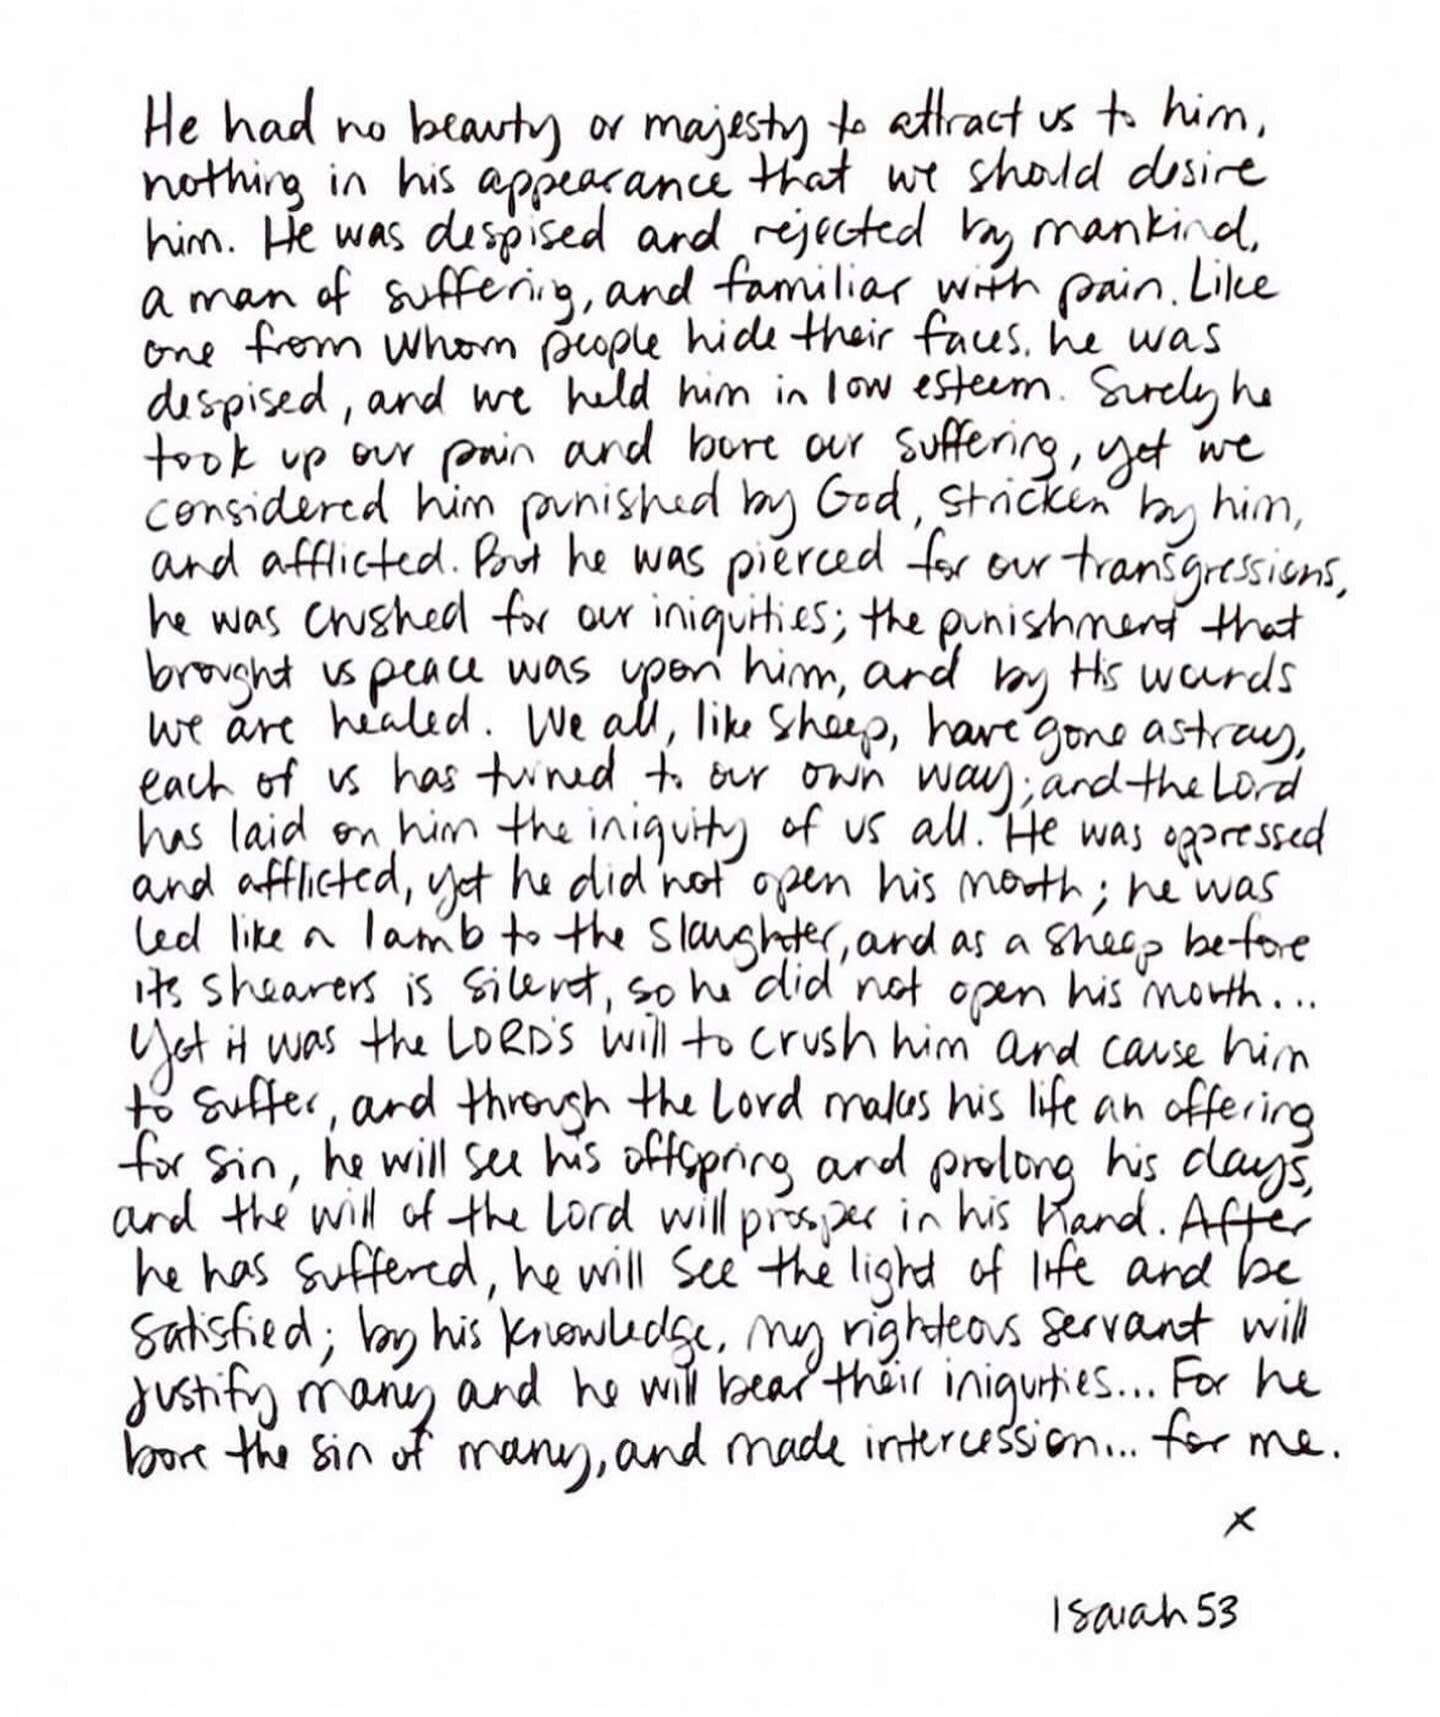 He had no beauty or majesty to attract us to him,
nothing in his appearance that we should desire
him. He was despised and rejected by mankind,
a man of suffering, and familiar with pain. Like
one from whom people hide their faces, he was
despised, and we held him in low esteem. Surely he
took up our pain and bore our suffering, yet we
considered him punished by God, stricken by him,
and afflicted. But he was pierced for our transgressions,
he was crushed for our iniquities; the punishment that
brought us peace was upon him, and by His wounds
we are healed. We all, like sheep, have gone astray,
each of us has turned to our own way; and the Lord
has laid on him the iniquity of us all. He was oppressed
and afflicted, yet he did not open his mouth; he was
led like a lamb to the slaughter, and as a sheep before
its shearers is silent, so he did not open his mouth...
Yet it was the LORD's will to crush him and cause him
to suffer, and through the Lord makes his life an offering
for sin, he will see his offspring and prolong his days,
and the will of the Lord will prosper in his hand. After
he has suffered, he will see the light of life and be
satisfied; by his knowledge, my righteous servant will
justify many and he will bear their iniquities... For he
bore the sin of many, and made intercession... for me.
x
Isaiah 53